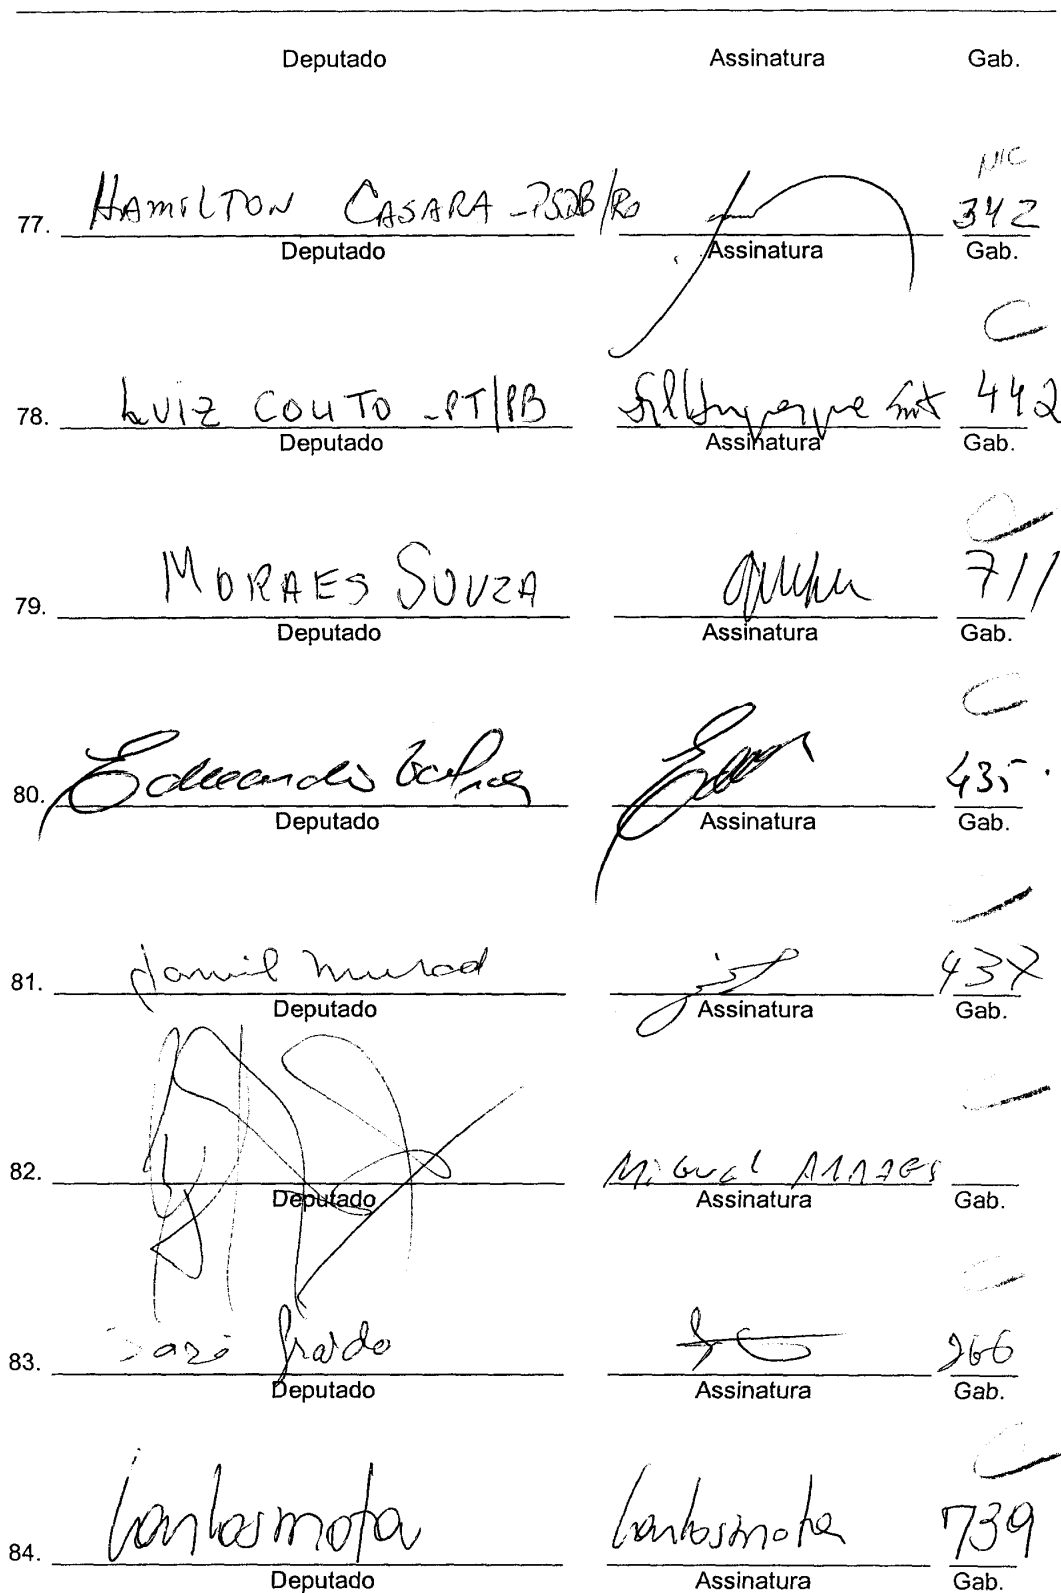 Deputado Assinatura Gab.
NIC
77. HAMILTON CASARA - PSDB/RO 342
Deputado Assinatura Gab.
C
78. LUIZ COUTO - PT/PB 442
Deputado Assinatura Gab.
C
79. MORAES SOUZA 711
Deputado Assinatura Gab.
C
80. Eduardo 435
Deputado Assinatura Gab.
81. Jamil Murad 437
Deputado Assinatura Gab.
82. Miguel ARRAES
Deputado Assinatura Gab.
83. 266
Deputado Assinatura Gab.
C
84. Carlos mota Carlos mota 739
Deputado Assinatura Gab.